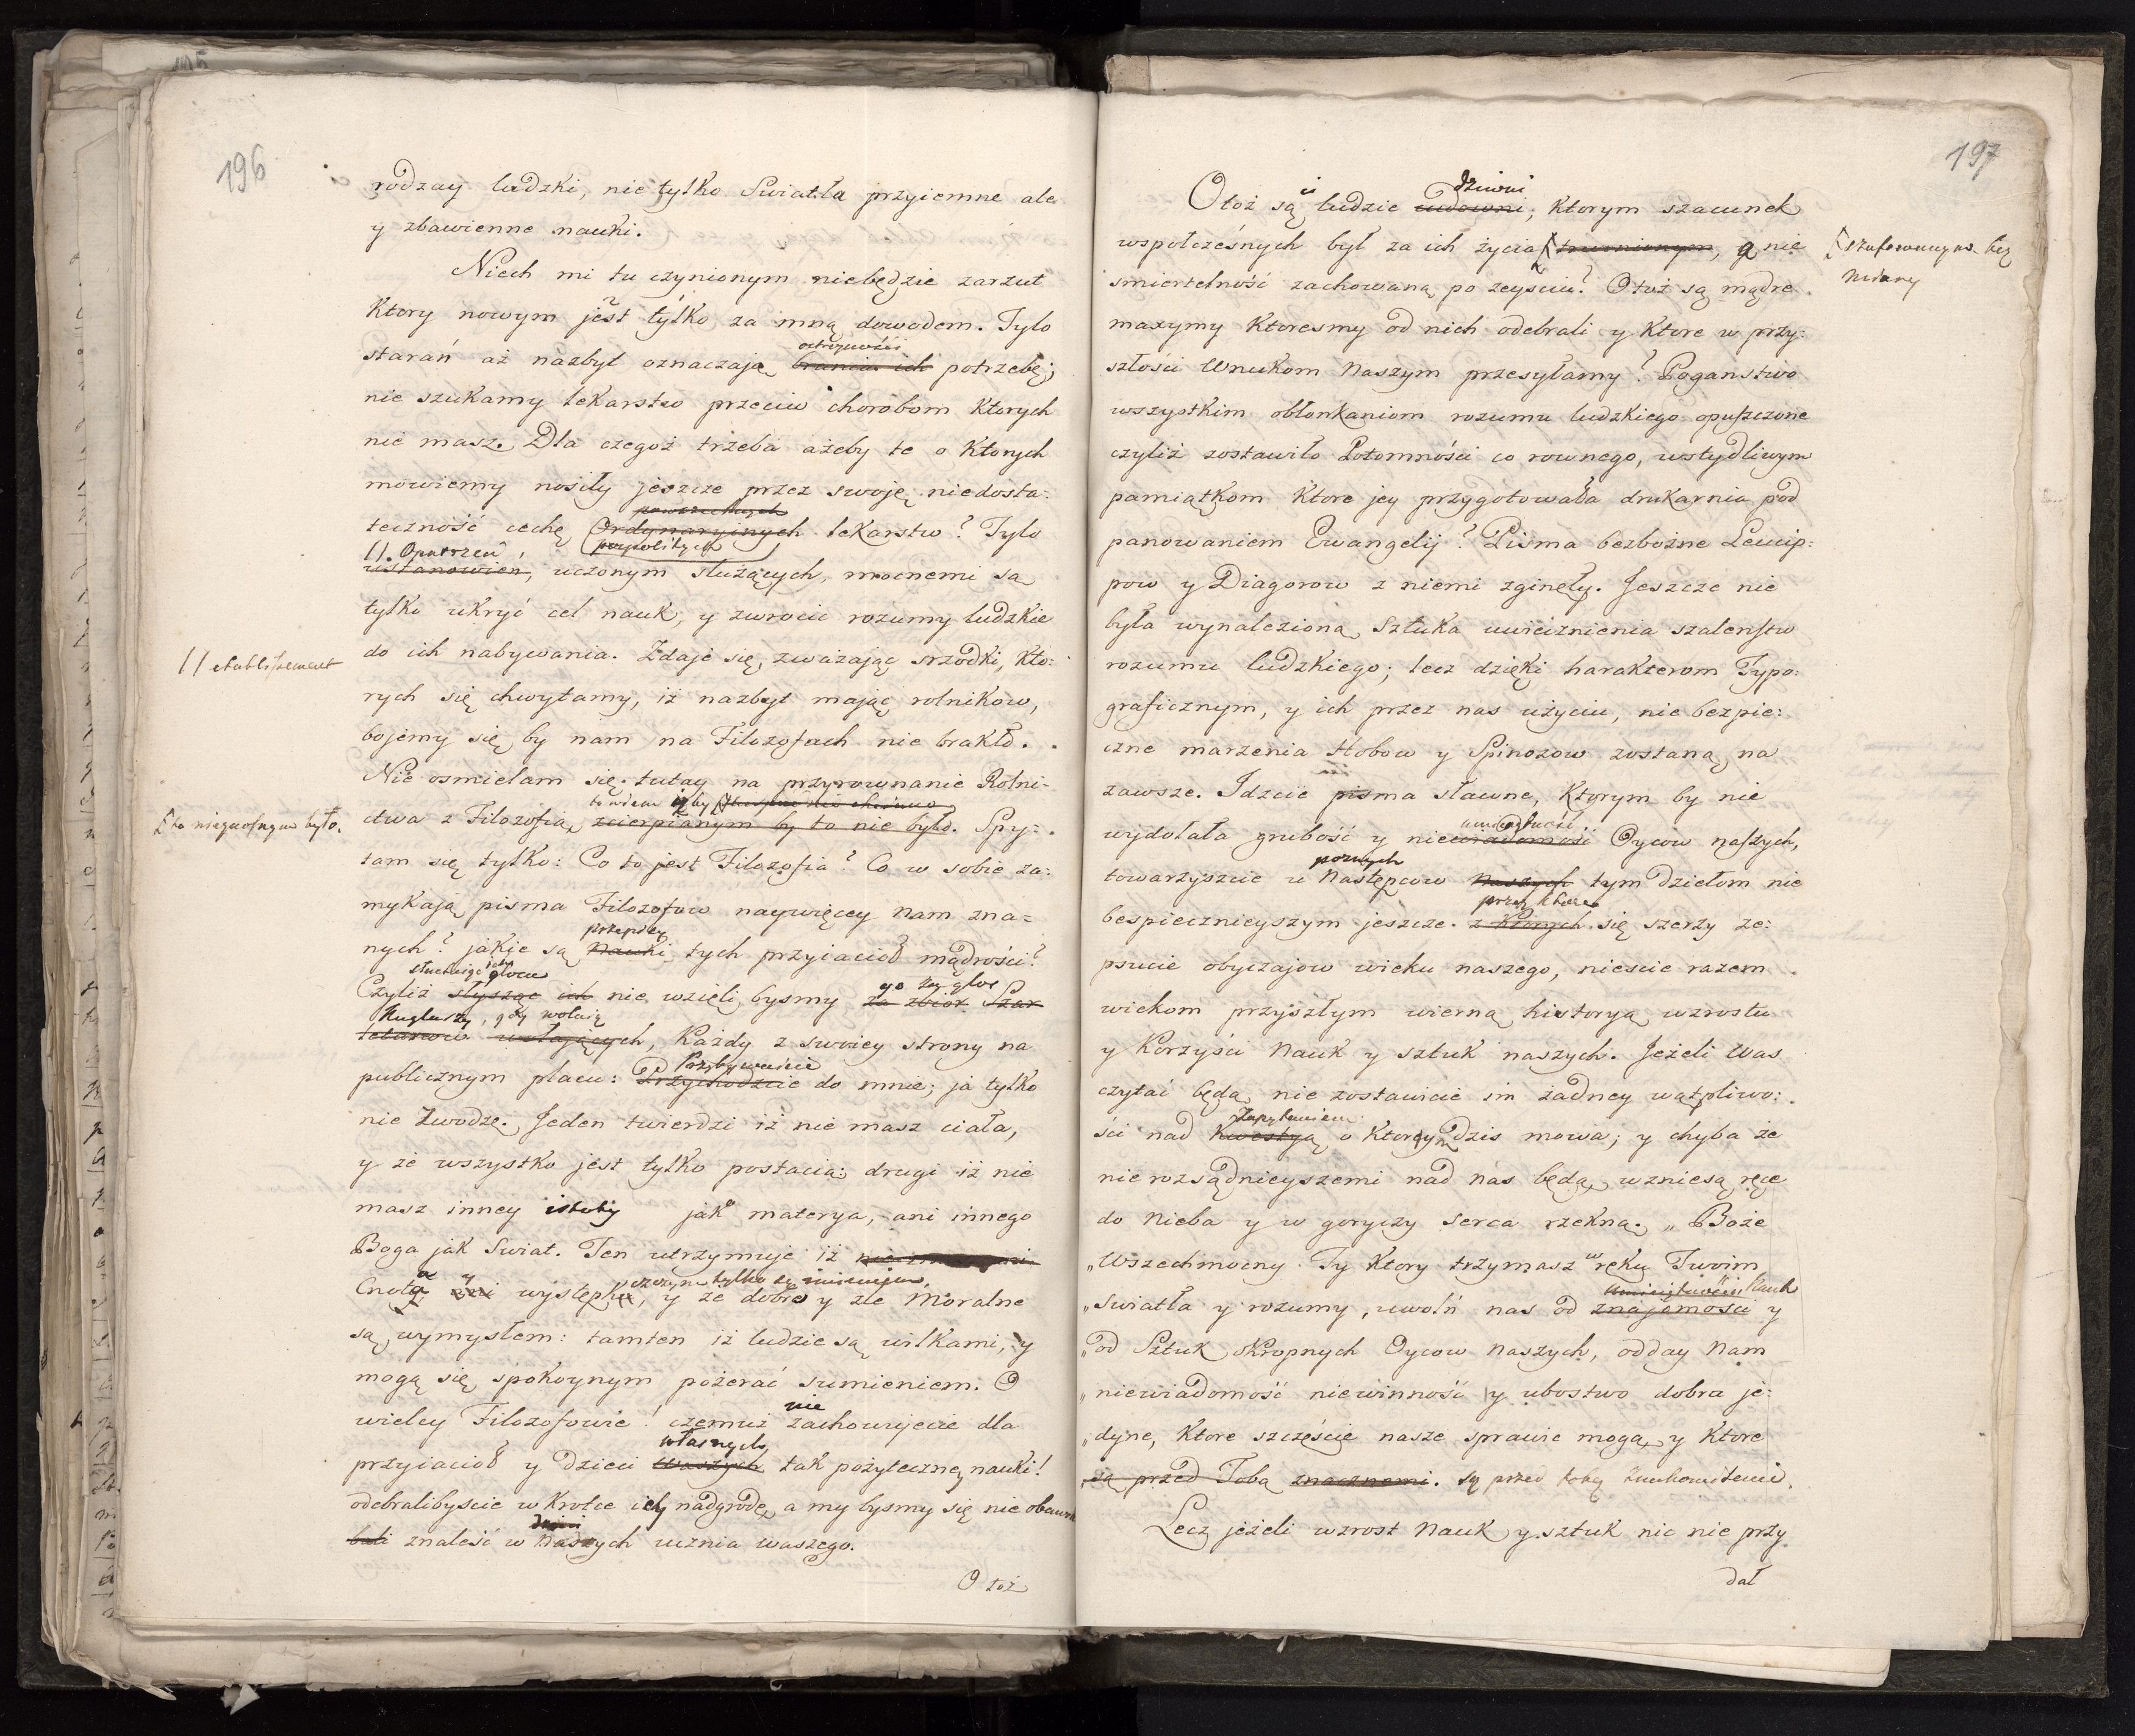 196
rodzay ludzki, nie tylko Swiatła przyiemne ale
y zbawienne nauki.
Niech mi tu czynionym niebędzie zarzut
Ktory nowym jest tylko za mną dowodem. Tylo
ostrożności
starań aż nazbyt oznaczają brania ich potrzebę;
nie szukamy lekarstw przeciw chorobom Ktorych
nie masz. Dla czegoż trzeba ażeby te o Ktorych
mowiemy nosiły jeszcze przez swoję niedosta:
powszechnych
teczność cechę Ordynaryinych lekarstw? Tylo
pospolitych
11. Opatrzeń,
ustanowien, uczonym służących, mocnemi są
tylko ukryć cel nauk, y zwrocic rozumy ludzkie
11 etablissement
do ich nabywania. Zdaje się, zważając srzodki, Kto:
rych się chwytamy, iż nazbyt mając rolnikow,
bojemy się by nam na Filozofach nie brakło.
Nie osmielam się tutay na przyrownanie Rolni-
ctwa z Filozofią, zcierpianym by to nie było. Spy:
tam się tylko: Co to jest Filozofia? Co w sobie za:
mykają pisma Filozofow naywięcey nam zna=
przepisy
nych? jakie są Nauki tych przyiacioł mądrości?
słuchaiąc ich głosu
Czyliż słysząc ich nie wzieli bysmy za zbior Szar
Kuglarzy, gdy wołaią
latanow wołających, Każdy z swoiey strony na
Przybywaycie
publicznym placu: Przychodzcie do mnie; ja tylko
nie zwodzę. Jeden twierdzi iż nie masz ciała,
y że wszystko jest tylko postacią; drugi iż nie
masz inney istoty jak materya, ani innego
Boga jak Swiat. Ten utrzymuje iż
czczym tylko są imieniem,
Cnota y występek, y że dobre y złe Moralne
są wymysłem: tamten iż ludzie są wilkami, y
mogą się spokoynym pożerać sumieniem. O
nie
wielcy Filozofowie! czemuż zachowujecie dla
własnych
przyiacioł y dzieci Waszych tak pożyteczney nauki!
odebralibyscie w Krotce iey nadgrodę, a my bysmy się nie obawia
dzieci
bali znaleść w Naszych ucznia waszego.
Otoż
197
dziwni
Otoż są ci ludzie cudowni, Ktorym szacunek
wspołcześnych był za ich życia trwonionym, a nie
szafowanym bez
miary
smiertelność zachowaną po zeysciu? Otoż są mądre
maxymy Ktoresmy od nich odebrali y Ktore w przy:
szłości Wnukom Naszym przesyłamy? Poganstwo
wszystkim obłonkaniom rozumu ludzkiego opuszczone
czyliż zostawiło Potomności co rownego, wstydliwym
pamiątkom Ktore jey przygotowała drukarnia pod
panowaniem Ewangelij? Pisma bezbożne Leucip:
pow y Diagorow z niemi zgineły. Jeszcze nie
była wynaleziona Sztuka uwiecznienia szalenstw
rozumu ludzkiego; lecz dzięki harakterom Typo:
graficznym, y ich przez nas użyciu, niebezpie:
czne marzenia Hobow y Spinozow zostaną na
zawsze. Idzcie pisma sławne, Ktorym by nie
umieiętność
wydołała grubość y niewiadomość Oycow naszych,
poznych
towarzyszcie u Następcow Naszych tym dziełom nie
przez ktore
bespiecznieyszym jeszcze z Ktorych się szerzy ze:
psucie obyczajow wieku naszego, niescie razem
wiekom przyszłym wierną historyą wzrostu
y Korzyści Nauk y sztuk naszych. Jeżeli Was
czytać będą nie zostawicie im żadney wątpliwo:
Zapytaniem
ści nad Kwestyą o Ktorym dzis mowa; y chyba że
nierozsądnieyszemi nad nas będą, wzniesą ręce
do Nieba y w goryczy Serca rzekną. „ Boże
„ Wszechmocny. Ty Ktory trzymasz w ręku Twoim
umieiętności Nauk
„ Swiatła y rozumy, uwolń nas od znajomości y
„ od Sztuk okropnych Oycow Naszych, odday Nam
„ niewiadomość niewinność y ubostwo dobra je:
„ dyne, Ktore szczęście nasze sprawic mogą y Ktore
„ są przed Tobą znacznemi. są przed tobą znakomitemi.
Lecz jeżeli wzrost Nauk y sztuk nic nie przy
dał